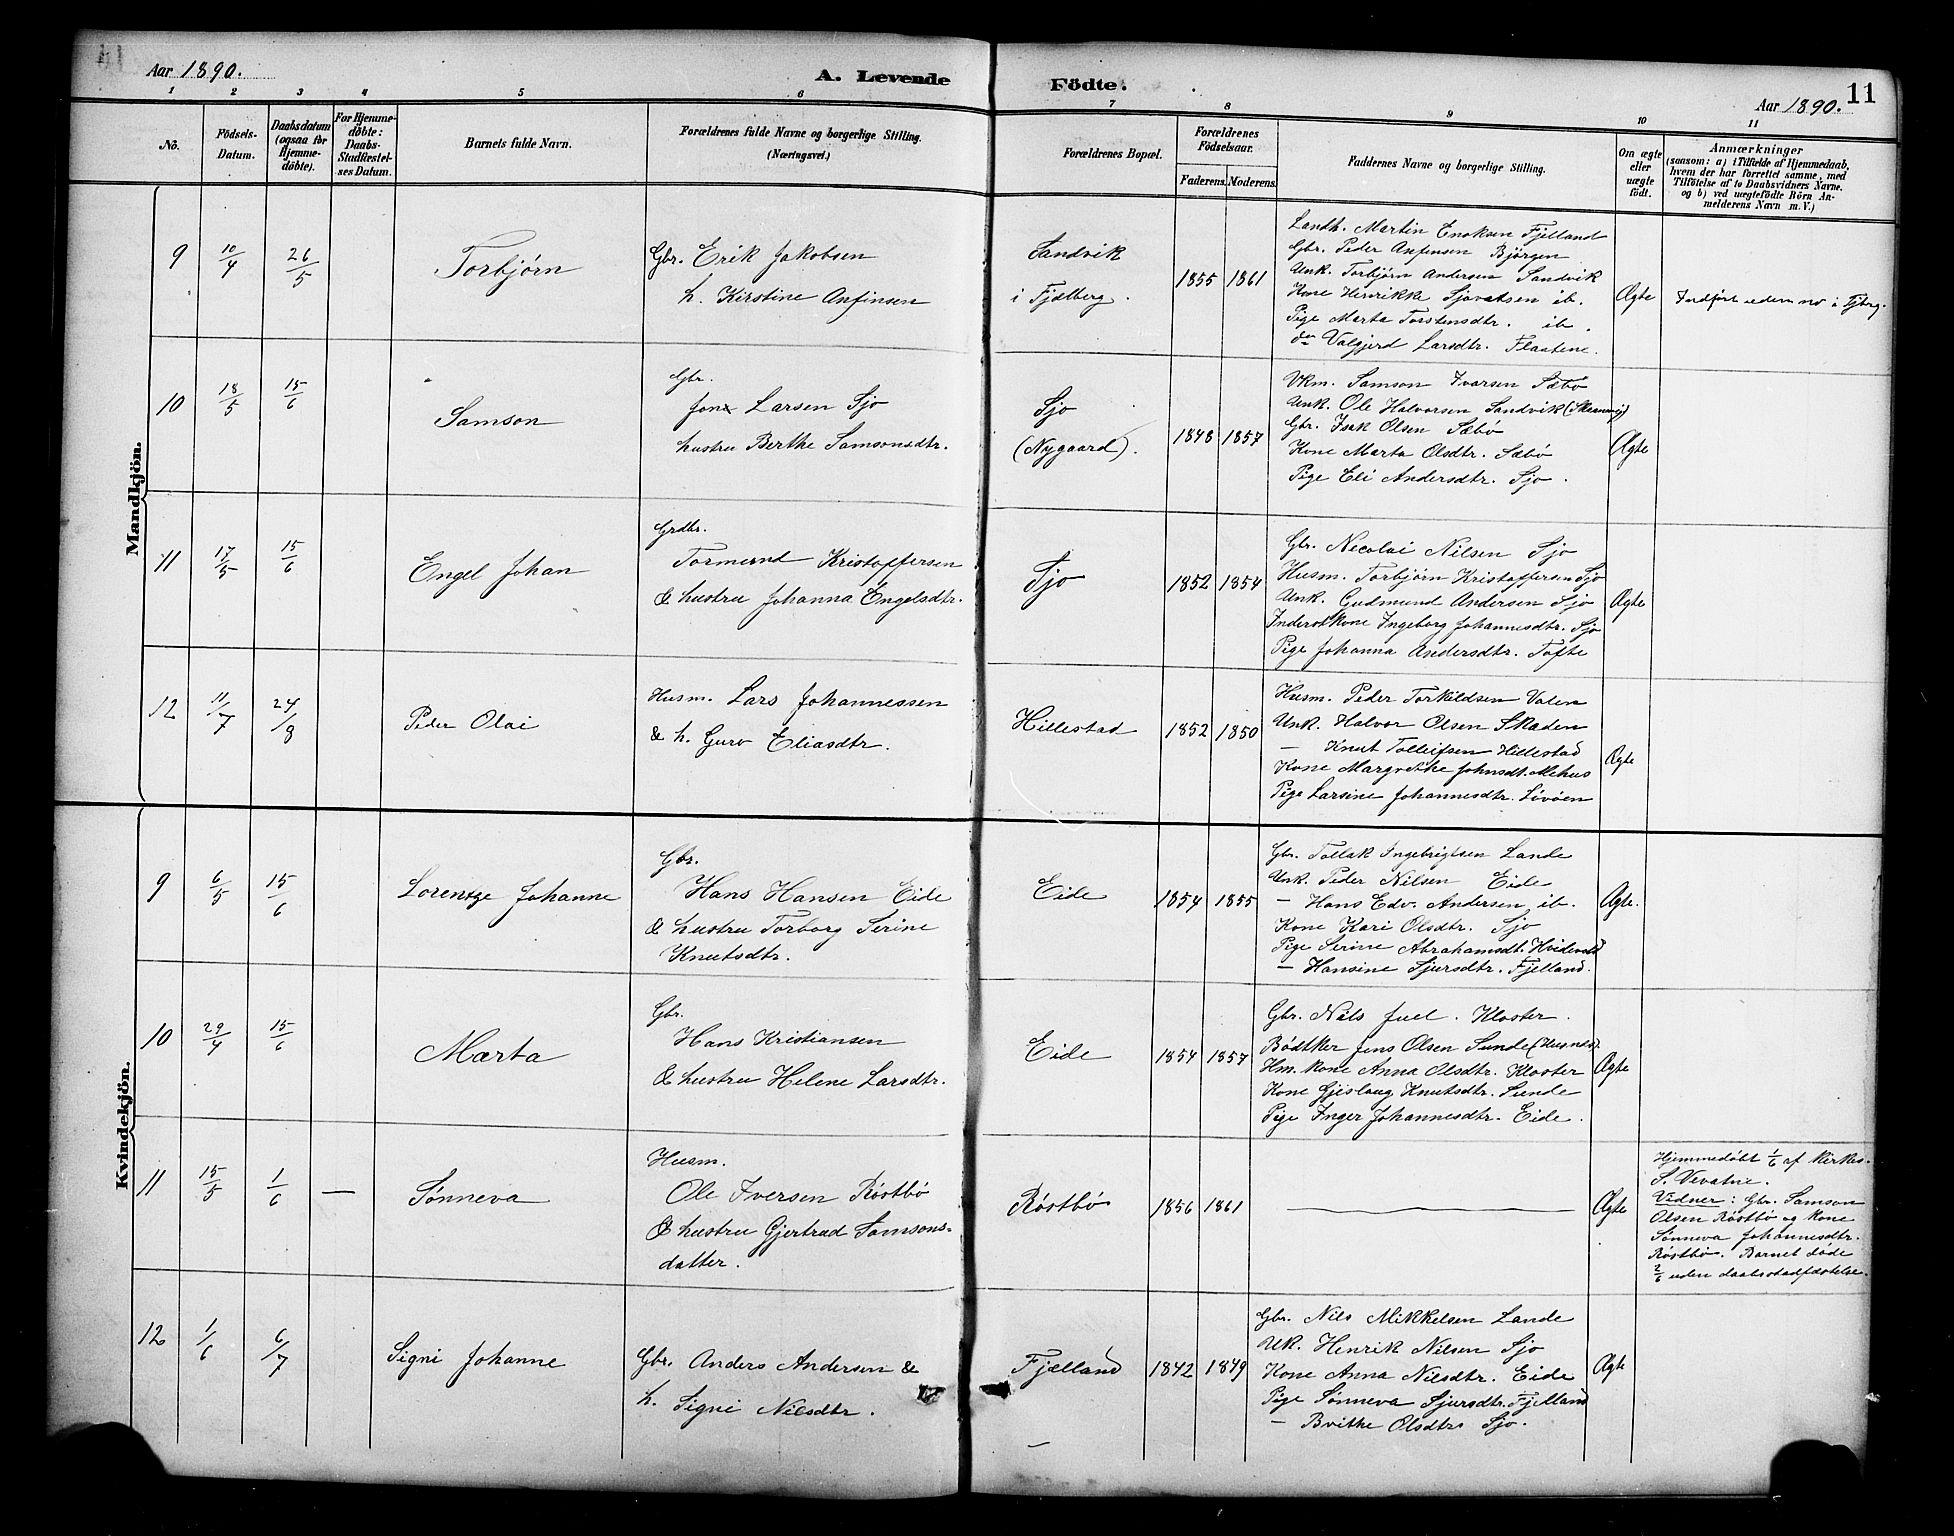 Aar 1890.
A. Levende Födte.
11
Aar 1890.
1 2 3 4 5 6 7 8 9 10 11
No.
Födsels-Datum.
Daabsdatum (ogsaa for Hjemme-döbte).
For Hjemme-döbte: Daabs-Stadfæstel-ses Datum.
Barnets fulde Navn.
Forældrenes fulde Navne og borgerlige Stilling. (Næringsvei.)
Forældrenes Bopæl.
Forældrenes Födselsaar.
Faderens. Moderens.
Faddernes Navne og borgerlige Stilling.
Om ægte eller uægte födt.
Anmærkninger
(saasom: a) i Tilfælde af Hjemmedaab,
hvem der har forrettet samme, med
Tilföielse af to Daabsvidners Navne.
og b) ved uægtefödte Börn An-
melderens Navn m. V.)
Mandkjön.
9 10/4 26/5 Torbjørn
Gbr. Erik Jakobsen
h. Kirstine Anfinsen
Sandvik
i Fjælberg.
1855 1861
Landh. Martin Enoksen Fjelland
Gbr. Peder Anfinsen Bjørgen
Unk. Torbjørn Andersen Sandvik
Kone Henrikke Sjovatsen ib.
Pige Marta Torstensdtr. ib.
do Valgjerd Larsdtr. Flaatene.
Ægte
Indført uden no i
10 18/5 15/6 Samson
Gbr.
Jon Larsen Sjo
hustru Berthe Samsonsdtr.
Sjo
(Nygaard).
1848 1857
Ukm. Samson Ivarsen Sæbø
Unk. Ole Halvorsen Sandvik
Gbr. Isak Olsen Sæbø
Kone Marta Olsdtr. Sæbø
Pige Eli Andersdtr. Sjo.
Ægte
11 17/5 15/6 Engel Johan
Grdbr.
Tormund Kristoffersen
& hustru Johanna Engelsdtr.
Sjo
1852 1854
Gbr. Necolai Nilsen Sjo
Husm. Torbjørn Kristoffersen Sjo
Unk. Gudmund Andersen Sjo
Inderstkone Ingeborg Johannesdtr. Sjo
Pige Johanna Andersdtr. Tofte
Ægte
12 11/7 24/8 Peder Olai
Husm. Lars Johannessen
& h. Guro Eliasdtr.
Hillestad
1852 1850
Husm. Peder Torkildsen Valen
Unk. Halvor Olsen Skaden
— Knut Tolleifsen Hillestad
Kone Margrethe Johnsdt. Mehus
Pige Larsine Johannesdtr. Løvøen
Ægte
Kvindekjön.
9 6/5 15/6 Lorentze Johanne
Gbr.
Hans Hansen Eide
& hustru Torborg Serine
Knutsdtr.
Eide
1854 1855
Gbr. Tollak Ingebrigtsen Lande
Unk. Peder Nilsen Eide
— Hans Edv. Andersen ib.
Kone Kari Olsdtr. Sjo
Pige Serine Abrahamsdt.
— Hansine Sjursdtr. Fjelland.
Ægte.
10 29/4 15/6 Marta
Gbr.
Hans Kristiansen
& hustru Helene Larsdtr.
Eide
1854 1857
Gbr. Nils Juel. Kloster.
Bødtker Jens Olsen Sunde (Husnes).
Hm. kone Anna Olsdtr. Kloster
Kone Gjeslaug Knutsdtr. Sunde
Pige Inger Johannesdtr. Eide.
Ægte
11 15/5 1/6 — Sønneva
Husm.
Ole Iversen Røstbø
& hustru Gjertrud Samsons-
datter.
Røstbø
1856 1861
—
Ægte
Hjemmedøbt 1/6 af Kirkes.
S. Vevatne.
Vidner: Gbr. Samson
Olsen Røstbø og kone
Sønneva Johannesdtr.
Røstbø. Barnet døde
2/6 uden daabsstadfæstelse.
12 1/6 6/7 Signi Johanne
Gbr. Anders Andersen &
h. Signi Nilsdtr.
Fjælland
1842 1849
Gbr. Nils Mikkelsen Lande
UK. Henrik Nilsen Sjo
Kone Anna Nilsdtr. Eide
Pige Sønneva Sjursdtr. Fjelland
— Brithe Olsdtr Sjo.
Ægte